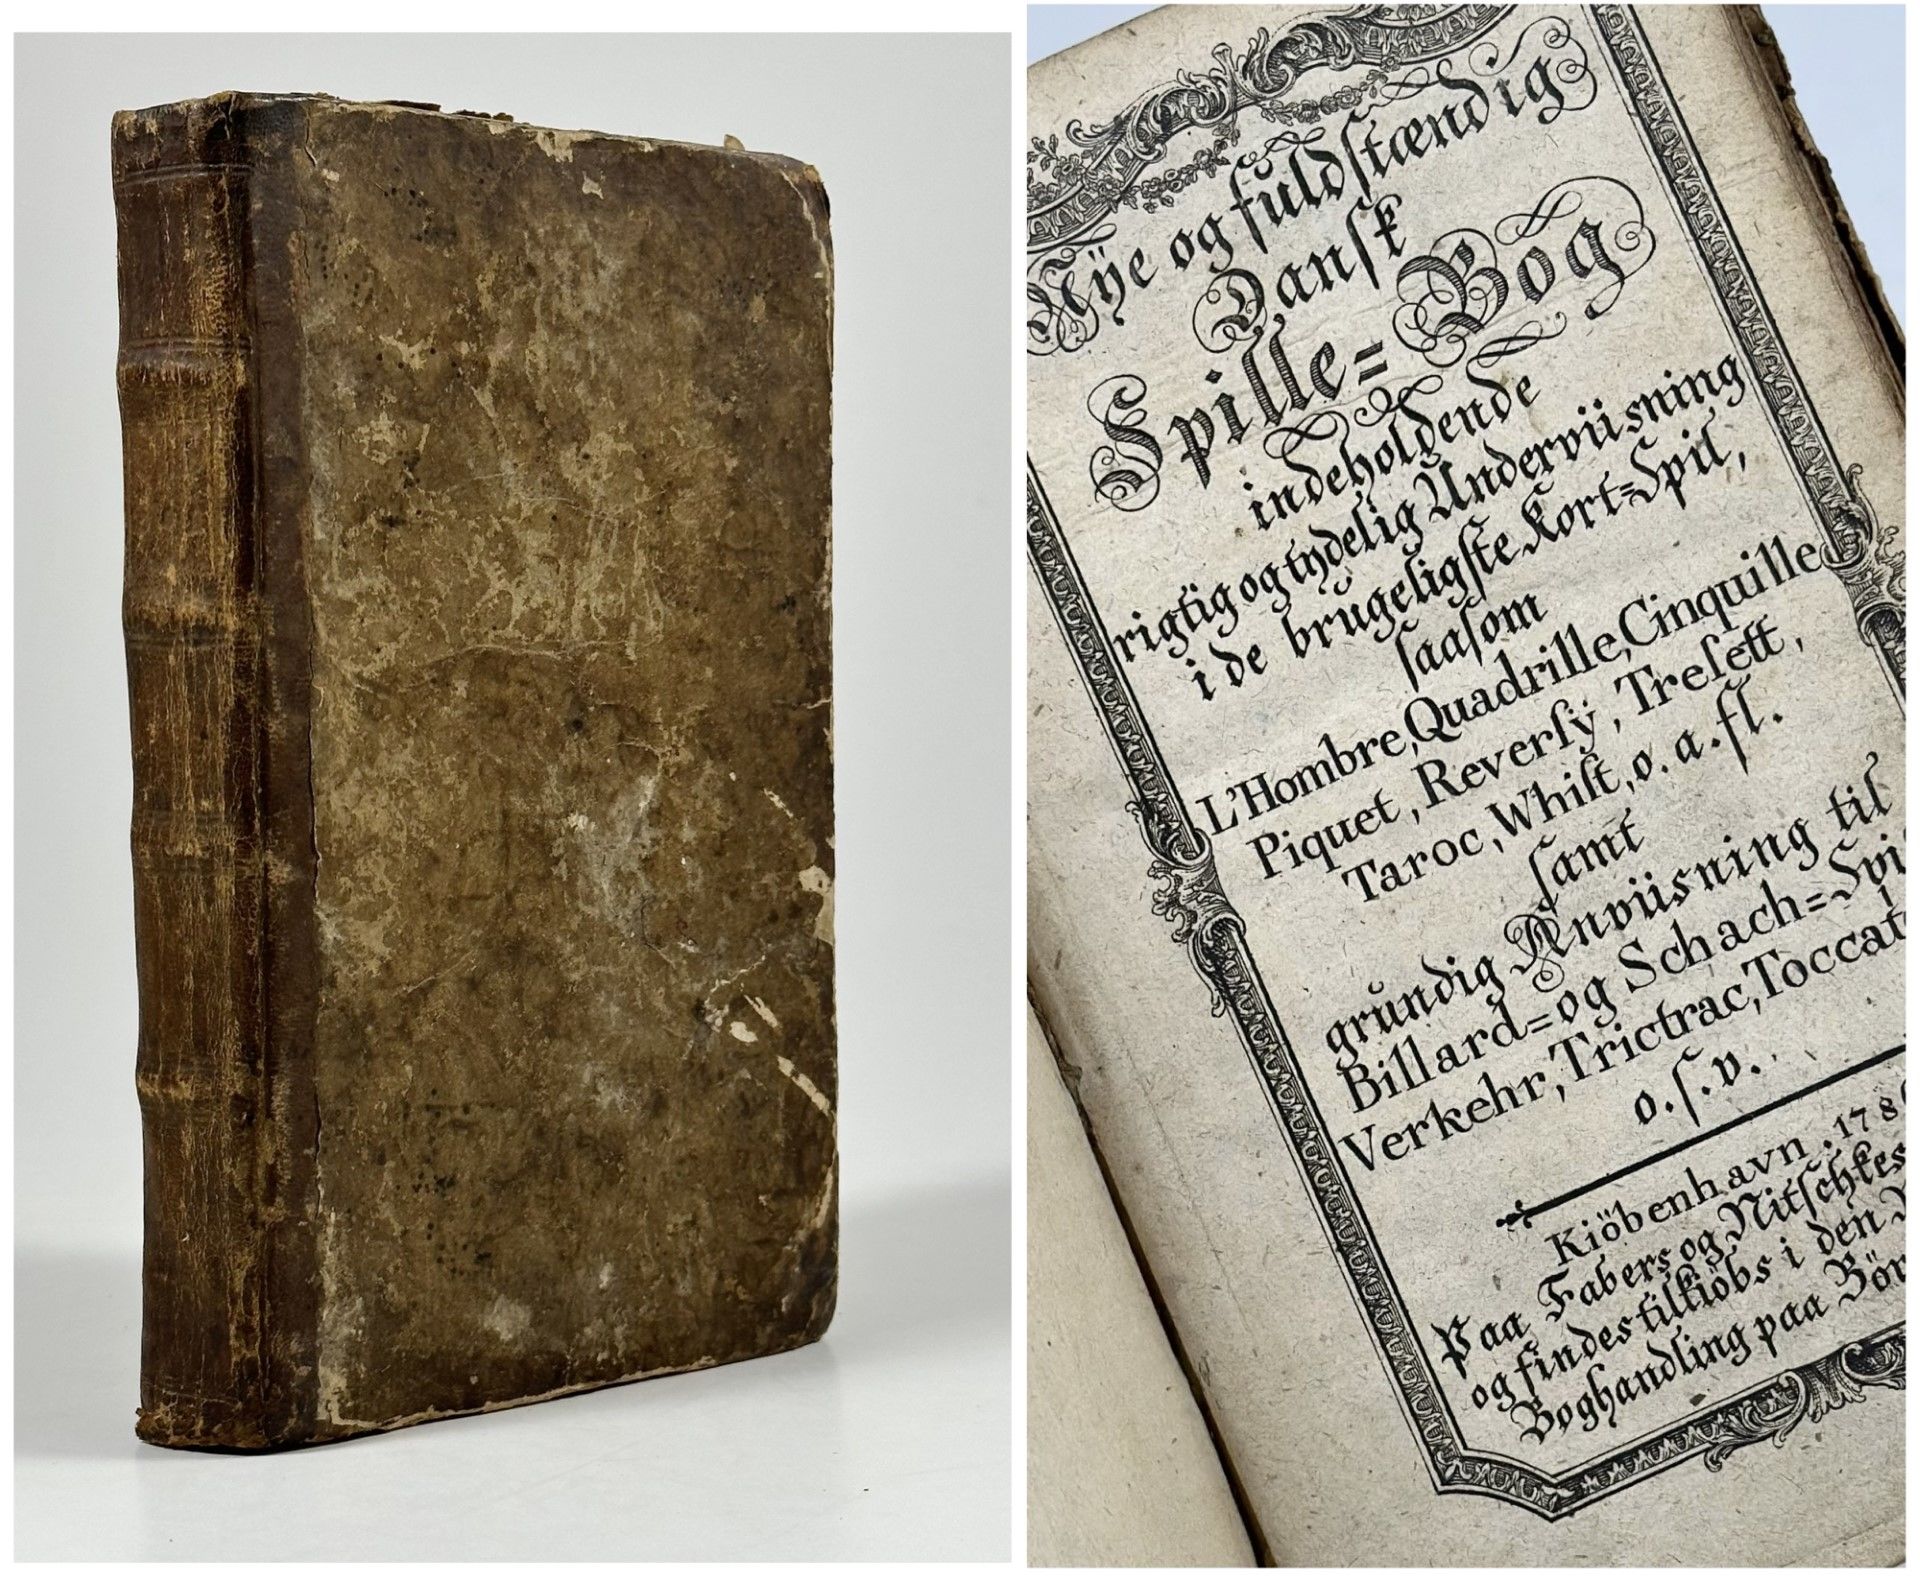 Nÿe og fuldſtændig
Danſk
Spille=Bog
indeholdende
rigtig og tydelig Underviisning
i de brugeligſte Kort=Spil,
ſaaſom
L'Hombre, Quadrille, Cinquille
Piquet, Reverſÿ, Treſett,
Taroc, Whiſt, o. a. fl.
ſamt
grundig Anviisning til
Billard= og Schach=Spi
Verkehr, Trictrac, Toccat
o. ſ. v.
Kiöbenhavn. 178
Paa Fabers og Nitſchkes
og findes tilkiöbs i den
Boghandling paa Bör